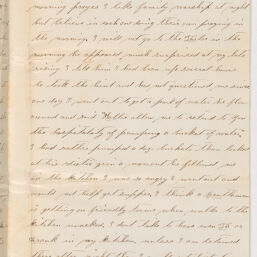 morning prayer I take family worship at night
but believe in each one doing their own praying in
the morning. I will not go to the Table in the
morning he appeared much surprised at my late
rising I told him I had been up several hours
he took the hint and has not questioned me since
one day I went out to get a pail of water he flew
around and said Nettie allow me to return to you
the hospitality of pumping a bucket of water
I had rather pumped a dozen buckets than looked
at his sinister grin a moment he followed me
in the Kitchen I was so angry I went out and
would not help get supper. I think a Gentleman
is getting on friendly terms when walks to the
Kitchen unasked. I don't like to have even
in my Kitchen unless I am